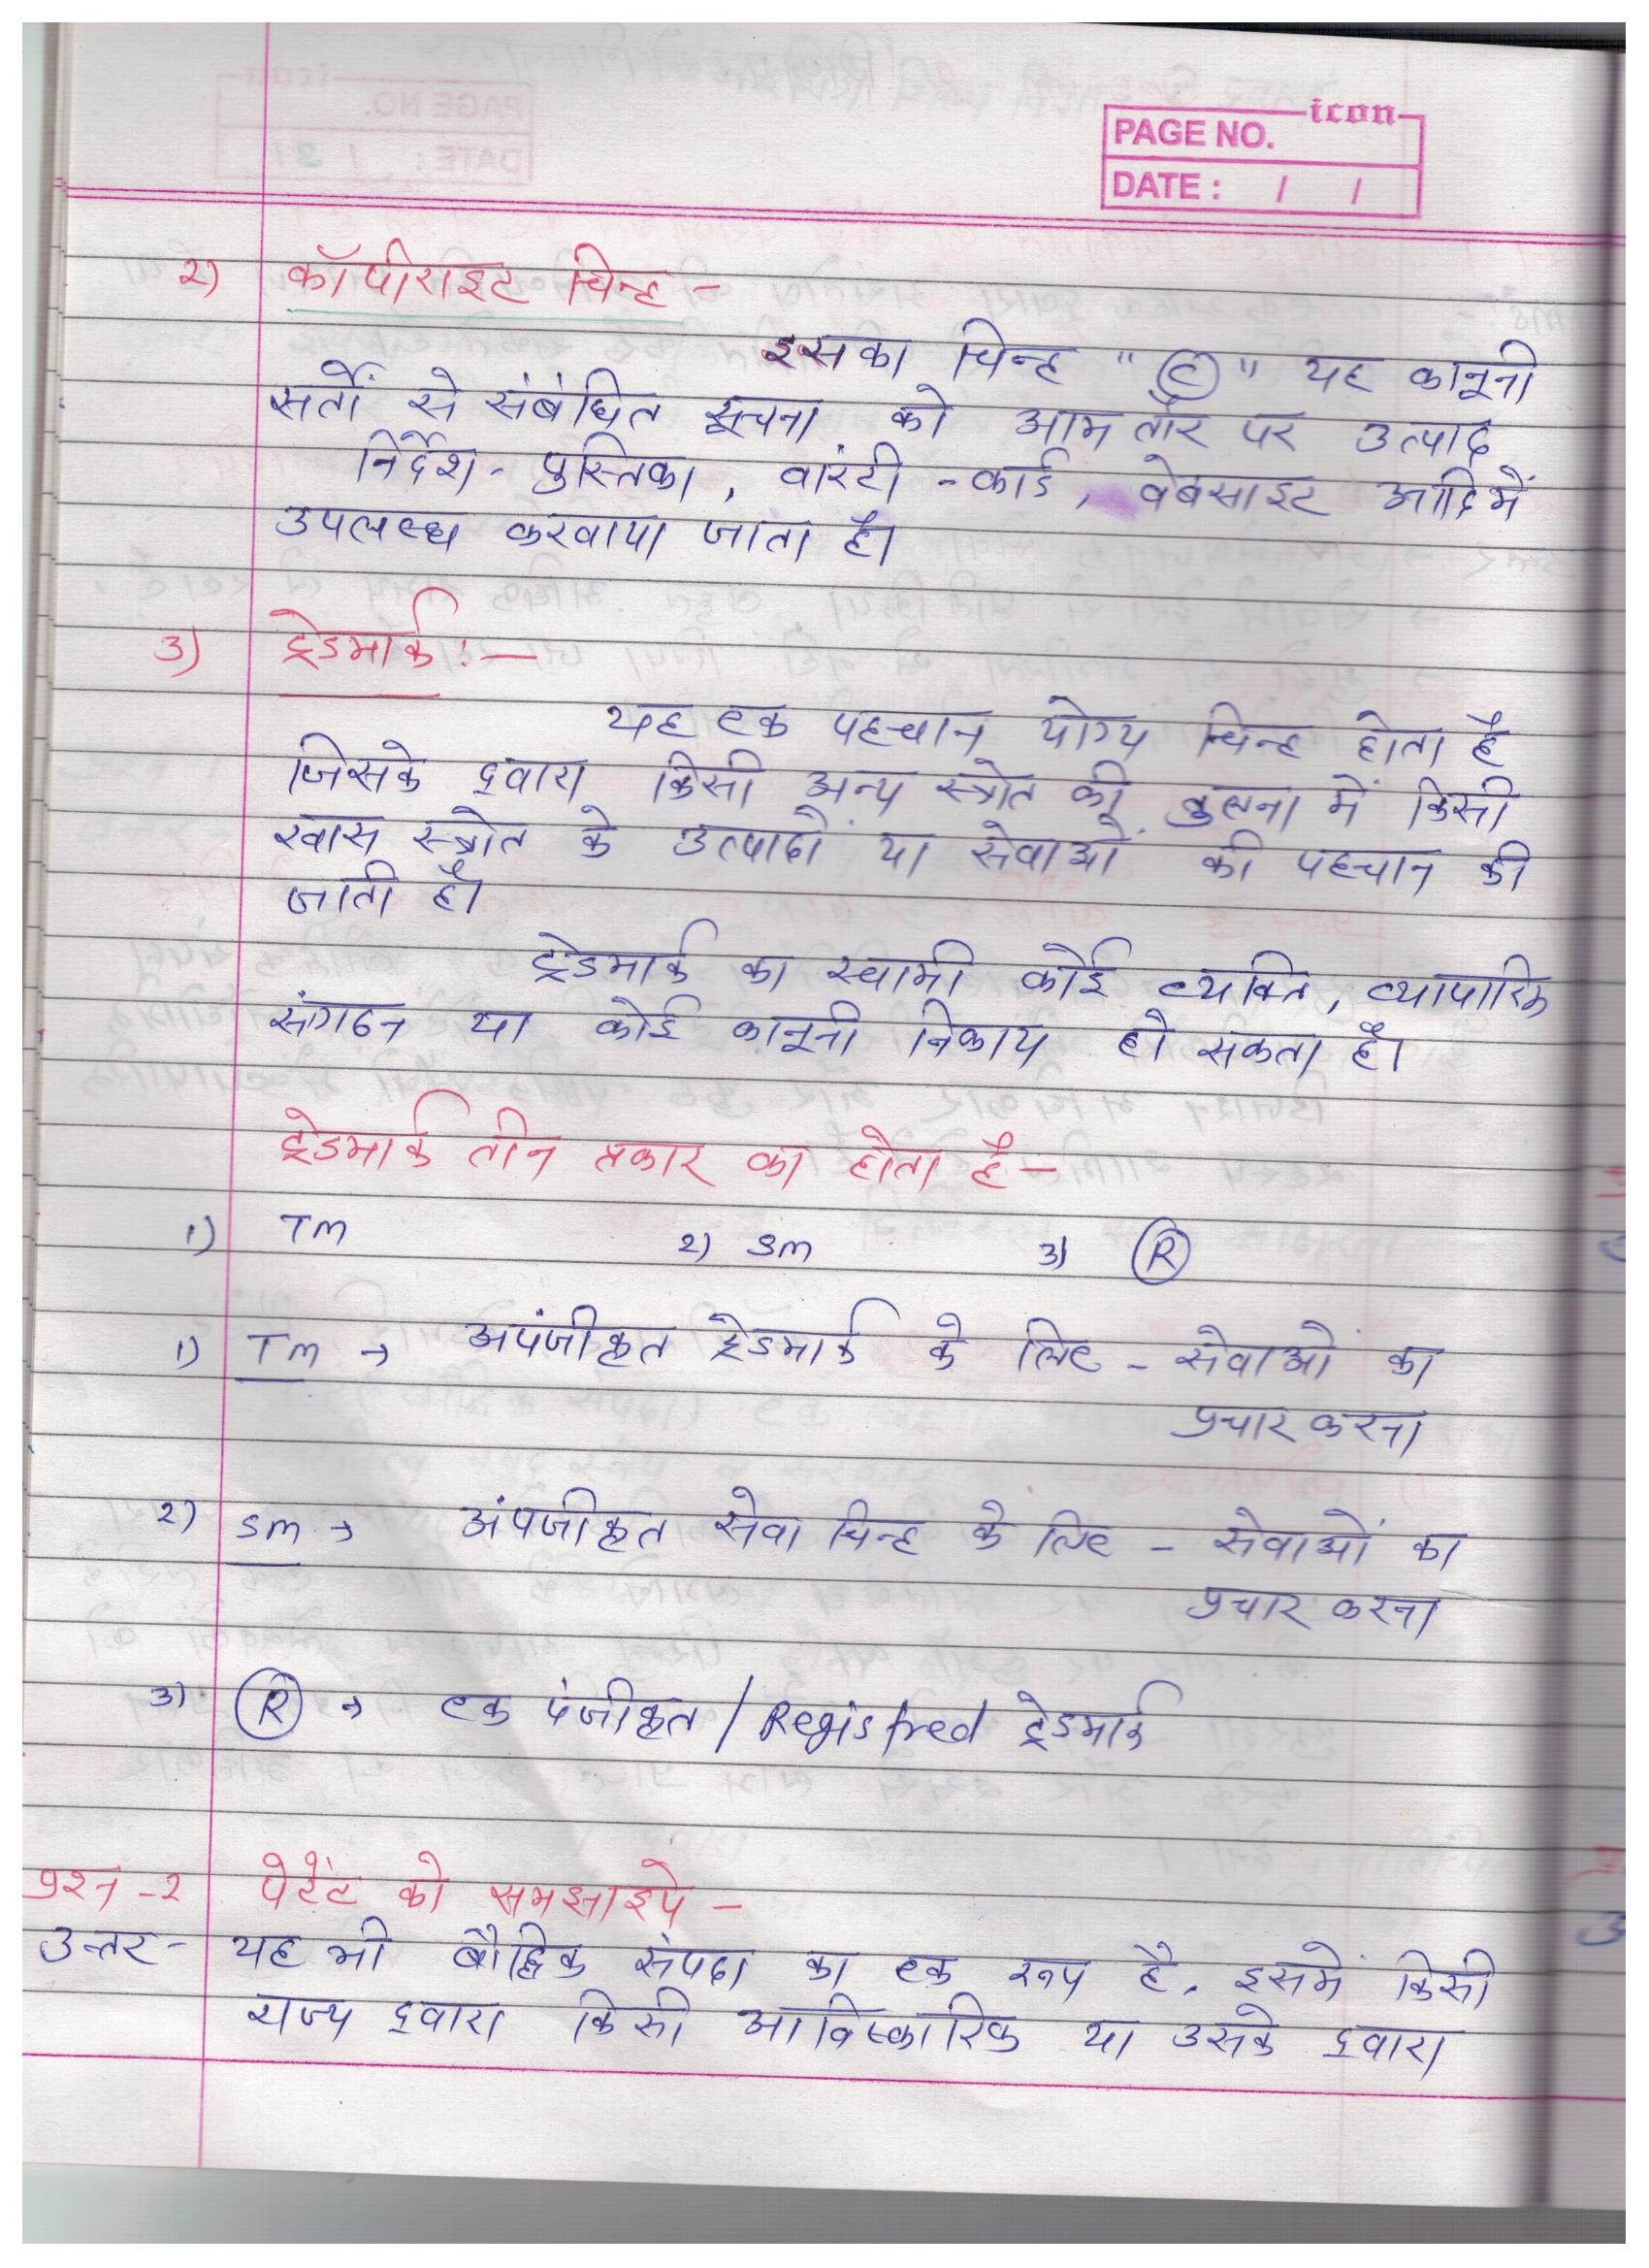 icon
PAGE NO.
DATE : / /
2) कॉपीराइट चिन्ह -
इसका चिन्ह "©" यह कानूनी
सर्तों से संबंधित सूचना को आमतौर पर उत्पाद
निर्देश - पुस्तिका, वारंटी - कार्ड, वेबसाइट आदि में
उपलब्ध करवाया जाता है।
3) ट्रेडमार्क :—
यह एक पहचान योग्य चिन्ह होता है
जिसके द्वारा किसी अन्य स्त्रोत की तुलना में किसी
खास स्त्रोत के उत्पादों या सेवाओं की पहचान की
जाती है।
ट्रेडमार्क का स्वामी कोई व्यक्ति, व्यापारिक
संगठन या कोई कानूनी निकाय हो सकता है।
ट्रेडमार्क तीन प्रकार का होता है -
1) Tm 2) Sm 3) Ⓡ
1) Tm → अपंजीकृत ट्रेडमार्क के लिए - सेवाओं का
प्रचार करना
2) Sm → अंपजीकृत सेवा चिन्ह के लिए - सेवाओं का
प्रचार करना
3) Ⓡ → एक पंजीकृत / Registred ट्रेडमार्क
प्रश्न - 2 पेटेंट को समझाइये -
उत्तर - यह भी बौद्धिक संपदा का एक रूप है. इसमें किसी
राज्य द्वारा किसी आविष्कारिक या उसके द्वारा